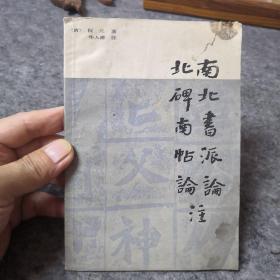 (清) 阮元 著
华人德 注
南北書派論
北碑南帖論
注